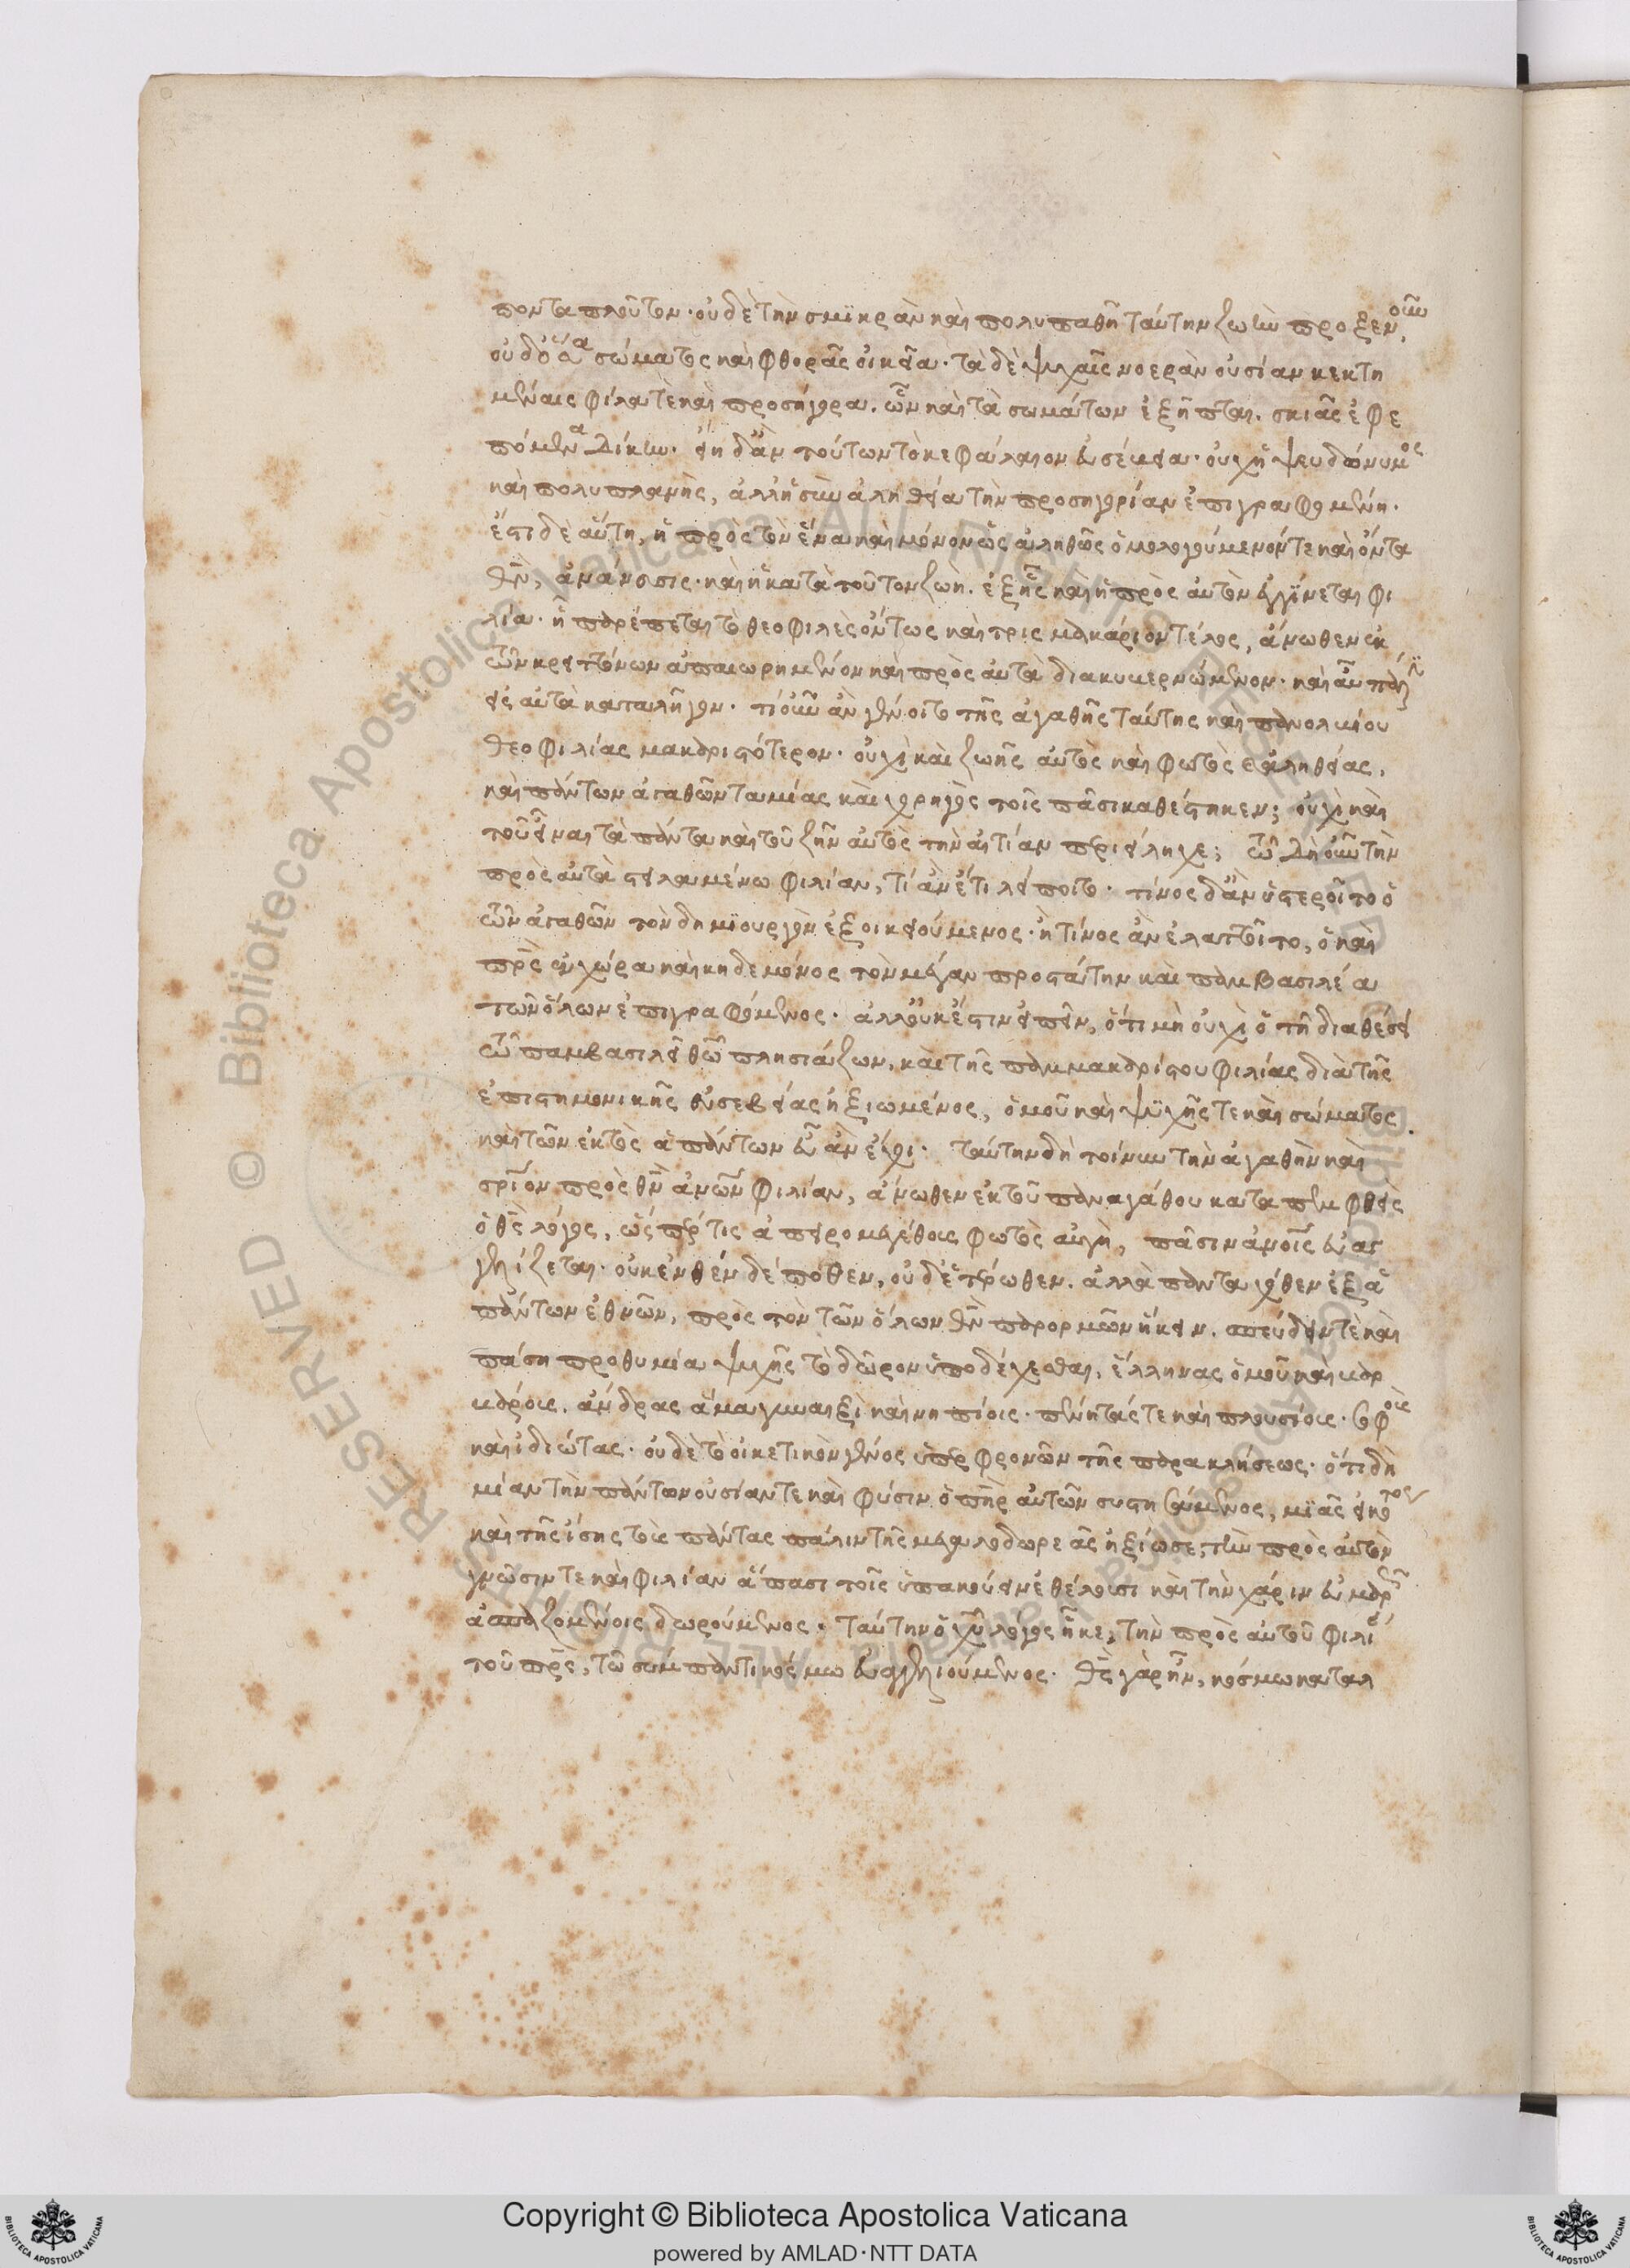 ποντα πλοῦτον· οὐδὲ τὴν σμϊκρὰν καὶ πολυπαθῆ ταύτην ζωὴν προξενοῦν,
οὐδ' ὅσα σώματος καὶ φθορᾶς οἰκεῖα· τὰ δὲ ψυχαῖς νοερὰν οὐσίαν κεκτη
μέναις φίλα τὲ καὶ προσήγορα. ὧν καὶ τὰ σωμάτων ἐξῆπται. σκιᾶς ἐφε
πόμενα δίκην. εἴη δ' ἂν τούτων τὸ κεφάλαιον εὐσέβεια· οὐχ ἡ ψευδώνυμος
καὶ πολυπλανὴς, ἀλλ' ἡ σὺν ἀληθεία τὴν προσηγορίαν ἐπιγραφομένη.
ἔστι δὲ αὕτη, ἡ πρὸς τὸν ἕνα καὶ μόνον ὡς ἀληθῶς ὁμολογούμενόν τε καὶ ὄντα
θν, ἀνάνευσις· καὶ ἡ κατὰ τοῦτον ζωὴ. ἐξ ἧς καὶ ἡ πρὸς αὐτὸν ἐγγίνεται φι
λία· ἧ παρέπεται τὸ θεοφιλὲς ὄντως καὶ τρὶς μακάριον τέλος, ἄνωθεν ἐκ
τῶν κρειττόνων ἀπαιωρημένον καὶ πρὸς αὐτὰ διακυβερνώμενον· καὶ αὖ πάλιν
εἰς αὐτὰ καταλῆγον· τί οὖν ἂν γένοιτο τῆς ἀγαθῆς ταύτης καὶ πανολβίου
θεοφιλίας μακαριστότερον· οὐχὶ καὶ ζωῆς αὐτὸς καὶ φωτὸς καὶ ἀληθείας,
καὶ πάντων ἀγαθῶν ταμίας καὶ χορηγὸς τοῖς πᾶσι καθέστηκεν; οὐχὶ καὶ
τοῦ εἶναι τὰ πάντα καὶ τοῦ ζῆν αὐτὸς τὴν αἰτίαν περιείληχε; τῶ δὴ οὖν τὴν
πρὸς αὐτὰ στειλαμένω φιλίαν, τί ἂν ἔτι λείποιτο· τίνος δ' ἂν ὑστεροῖτο ὁ
τῶν ἀγαθῶν τὸν δημϊουργὸν ἐξοικειούμενος· ἢ τίνος ἂν ἐλαττοῖτο, ὁ καὶ
πρς ἐν χώρα καὶ κηδεμόνος τὸν μέγαν προστάτην καὶ παμβασιλέα
τῶν ὅλων ἐπιγραφόμενος· ἀλλ' οὐκ ἔστιν εἰπεῖν, ὅτι μὴ οὐχὶ ὁ τῆ διαθέσει
τῶ παμβασιλεῖ θῶ πλησιάζων, καὶ τῆς παμμακαρίστου φιλίας διὰ τῆς
ἐπιστημονικῆς εὐσεβείας ἠξιωμένος, ὁμοῦ καὶ ψυχῆς τε καὶ σώματος
καὶ τῶν ἐκτὸς ἁπάντων εὖ ἂν ἔχοι· ταύτην δὴ τοίνυν τὴν ἀγαθὴν καὶ
σριον πρὸς θν ἀνων φιλίαν, ἄνωθεν ἐκ τοῦ παναγάθου καταπεμφθεὶς
ὁ θς λόγος, ὥσπερ τις ἀπειρομεγέθους φωτὸς αὐγὴ, πᾶσιν ἀνοις εὐαγ
γελίζεται· οὐκ ἐνθένδέ ποθεν, οὐδ' ἑτέρωθεν. ἀλλὰ πανταχόθεν ἐξ ἁ
πάντων ἐθνῶν, πρὸς τὸν τῶν ὅλων θν παρορμῶν ἥκειν. σπεύδειν τὲ καὶ
πάση προθυμία ψυχῆς τὸ δῶρον ὑποδέχεσθαι, ἕλληνας ὁμοῦ καὶ βαρ
βάροις. ἄνδρας ἅμα γυναιξὶ καὶ νηπίοις· πένητάς τε καὶ πλουσίοις· σοφοὺς
καὶ ἰδιώτας· οὐδὲ τὸ οἰκετικὸν γένος ὑπερφρονῶν τῆς παρακλήσεως· ὅτι δὴ
μίαν τὴν πάντων οὐσίαν τε καὶ φύσιν ὁ πηρ αὐτῶν συστησάμενος, μϊᾶς εἰκότως
καὶ τῆς ἴσης τοὺς πάντας πάλιν τῆς μεγαλοδωρεᾶς ἠξίωσε· τὴν πρὸς αὐτὸν
γνῶσιν τε καὶ φιλίαν ἅπασι τοῖς ὑπακούειν ἐθέλουσι καὶ τὴν χάριν εὐμαρῶς
ἀσπαζομένοις δωρούμενος· ταύτην ὁ χυ λόγος ἧκε, τὴν πρὸς αὐτοῦ φιλίαν
τοῦ πρς, τῶ σύμπαντι κόσμω εὐαγγελιούμενος· θς γὰρ ἦν, κόσμω καταλ